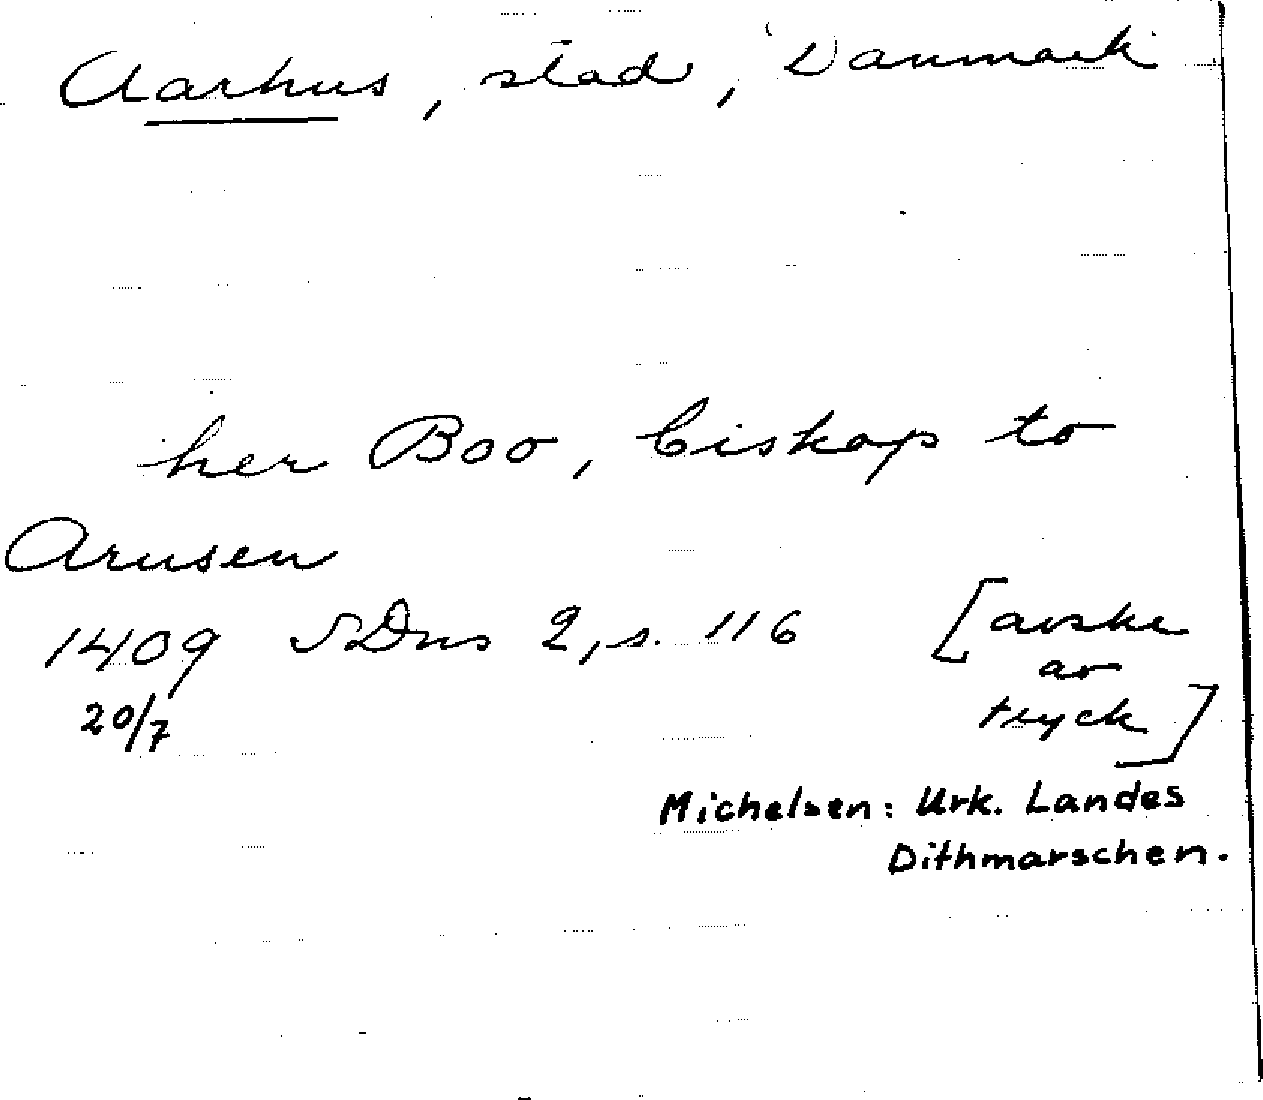 Aarhus, stad, Danmark
her Boo, biskop to
Arusen
1409 SDns 2, s. 116 [avskr
av
20/7 tryck]
Michelsen: Urk. Landes
Dithmarschen.